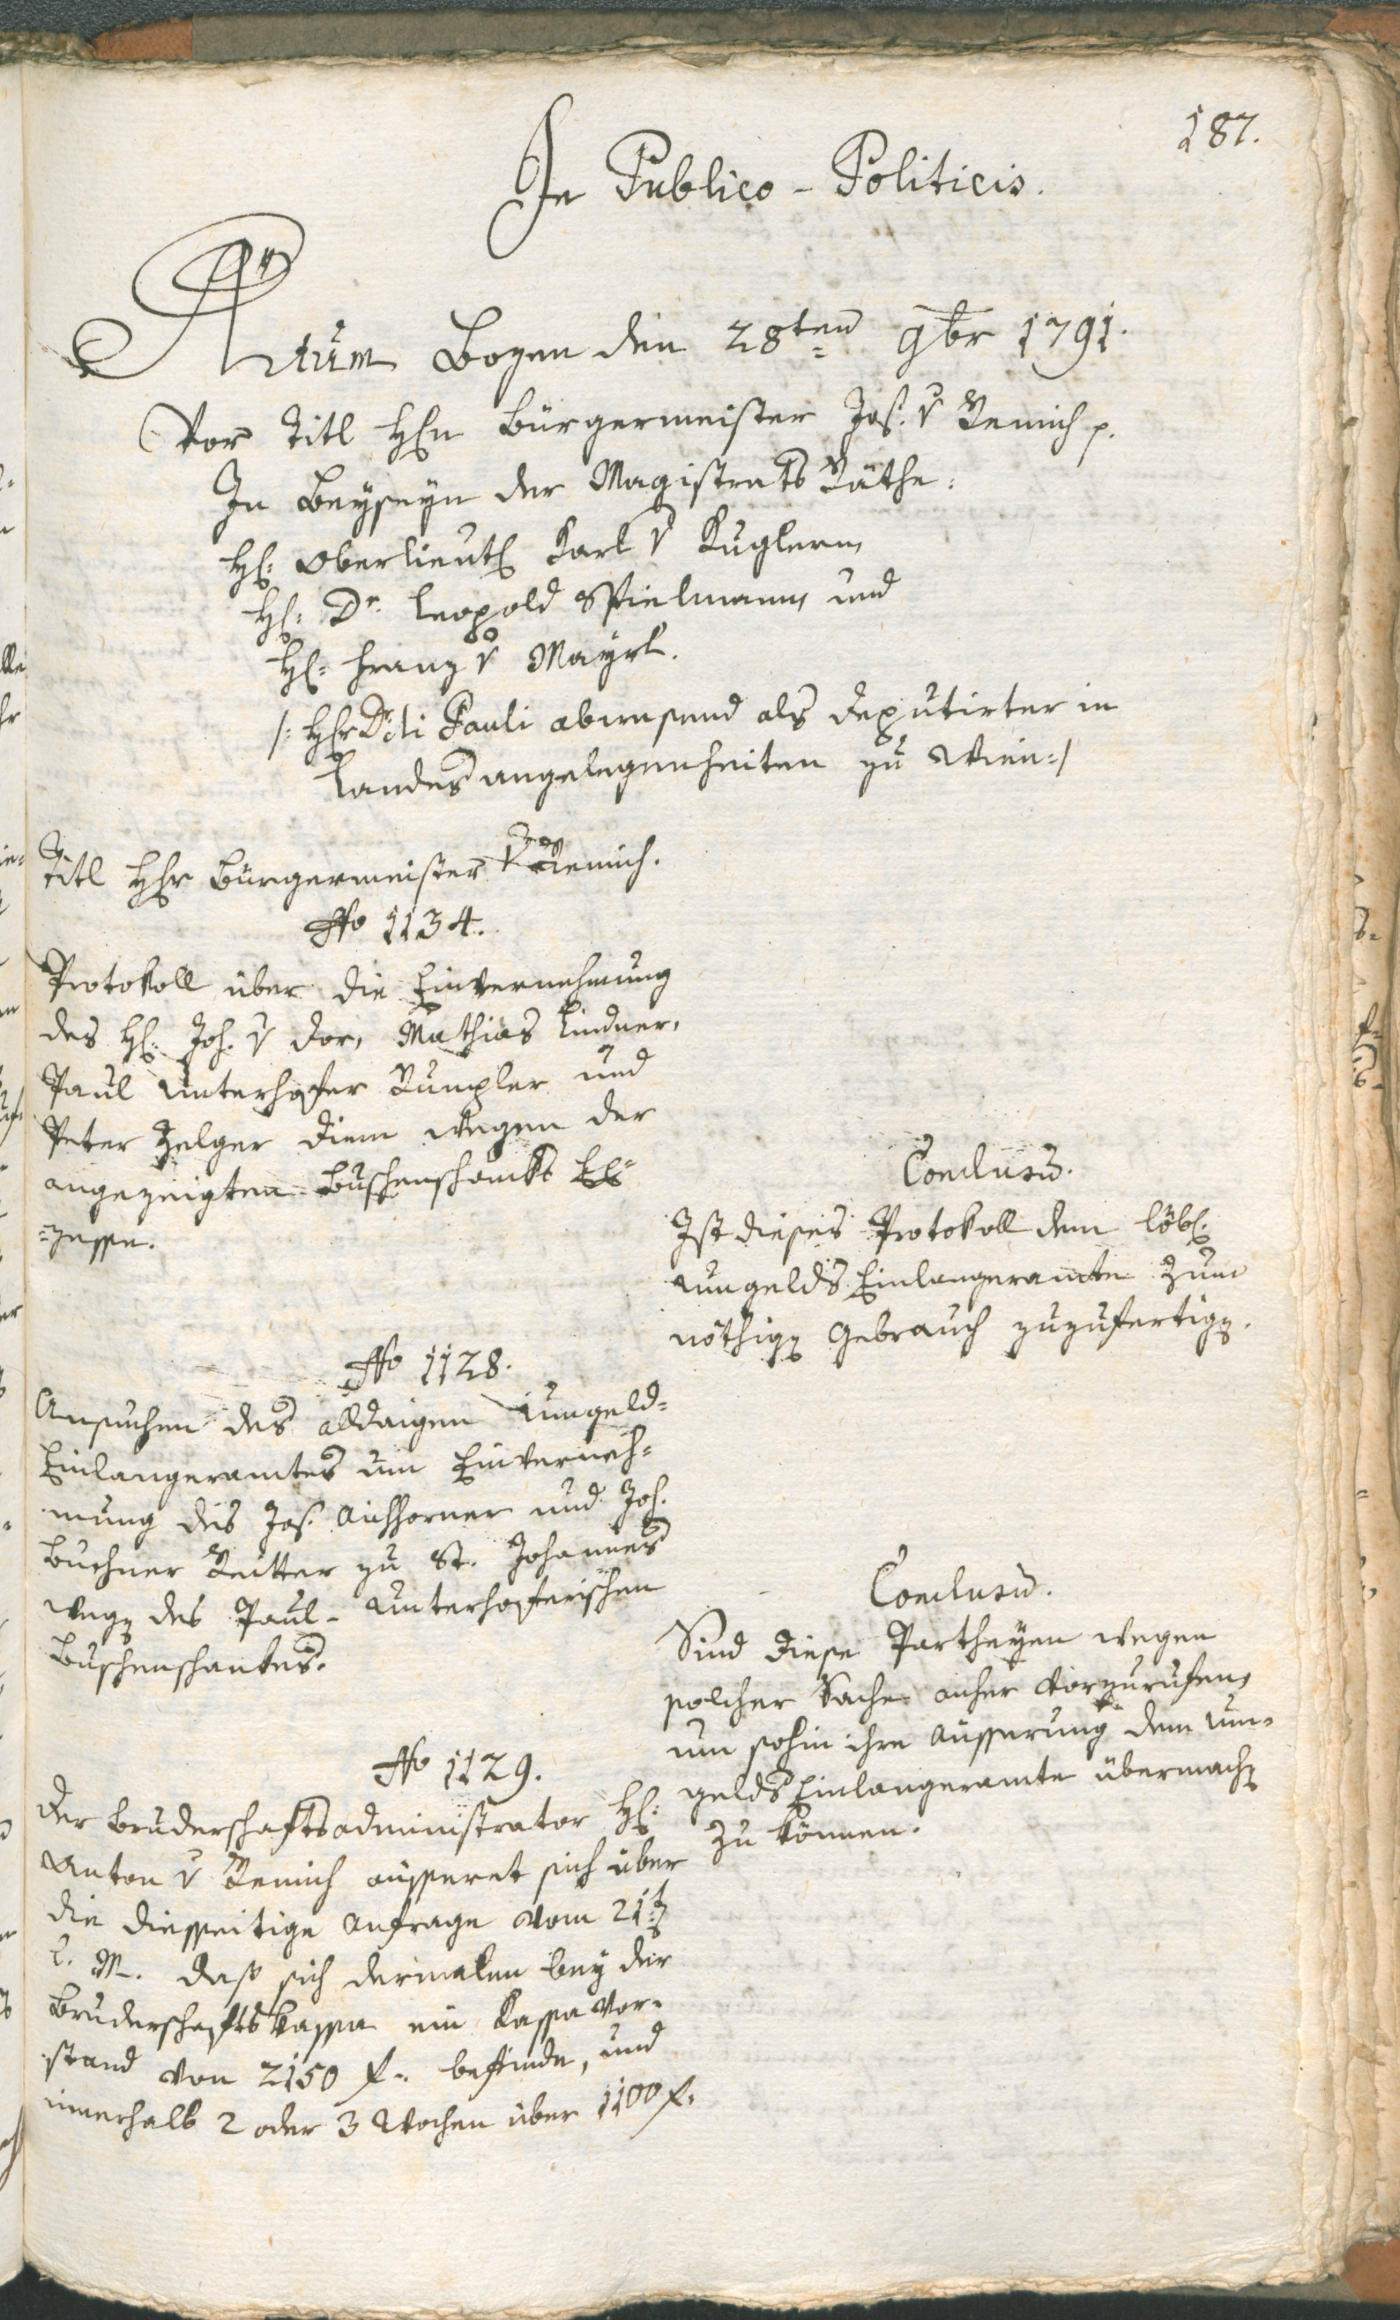 187.
In Publico-Politicis.
Actum Bozen den 28ten 9br 1791.
Vor Titl H͠En Bürgermeister Jos. v Remich p.
In Beyseyn der Magistrats Räthe:
H: Oberlieut. Karl v Kuglern
H: Dr. Leopold Spielmann, und
H: Franz v Mayrl.
/: Hr Dr Pauli abwesend als deputirter in
Landesangelegenheiten zu Wien :/
Titl Herr Bürgermeister v Remich.
No 1134.
Protokoll über die Einvernehmung
des H: Joh. v Dor, Mathias Lindner,
Paul Unterhofer Rungler und
Peter Zelger Diem wegen der
angezeigten Buschenschanks Ex=
=zesse.
Conclusum.
Ist dieses Protokoll dem löbl.
Umgelds Einlangeramte zum
nöthigen Gebrauch zuzufertigen.
No 1128.
Ansuchen des alldaigen Umgeld=
Einlangeramtes um Einverneh=
mung des Jos. Aichhorner und Joh.
Buchner Reitter zu St. Johannes
wegen des Paul-Unterhoferischen
Buschenschankes.
Conclusum.
Sind diese Partheyen wegen
solcher Sache anher vorzurufen,
um sohin ihre Äusserung dem Um=
gelds Einlangeramte übermachen
zu können.
No 1129.
Der Bruderschaftsadministrator H:
Anton v Remich äusseret sich über
die diesseitige Anfrage vom 21t
l. M. daß sich dermalen bey der
Bruderschaftskassa ein Kassavor=
stand von 2150 f. befinde, und
innerhalb 2 oder 3 Wochen über 1100 f.